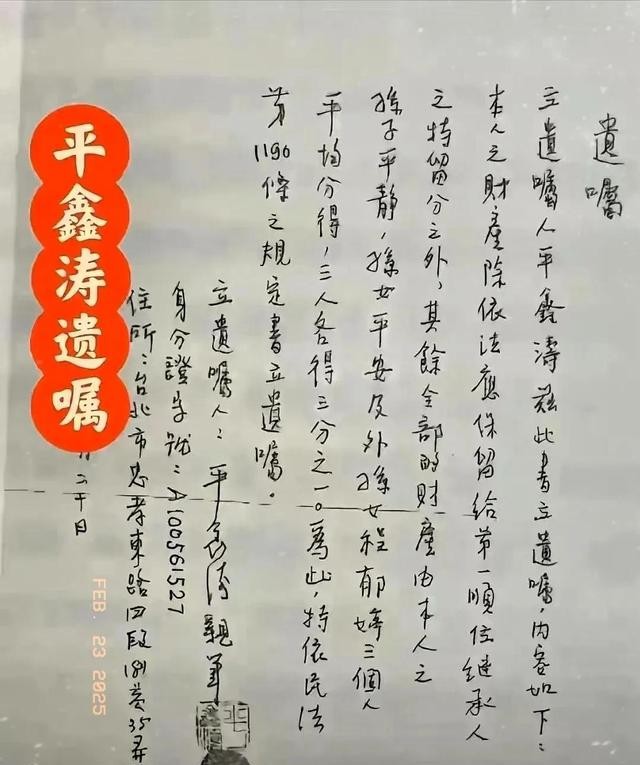 遺囑
立遺囑人平鑫濤茲此書立遺囑，內容如下：
本人之財產除依法應保留給第一順位繼承人
之特留分之外，其餘全部的財產由本人之
孫子平靜，孫女平安及外孫女程郁婷三個人
平均分得，三人各得三分之一。為此，特依民法
第1190條之規定書立遺囑。
立遺囑人：平鑫濤親筆
身分證字號：A100561527
住所：台北市忠孝東路四段181巷35弄
月二十日
平鑫涛遗嘱
FEB. 23 2025